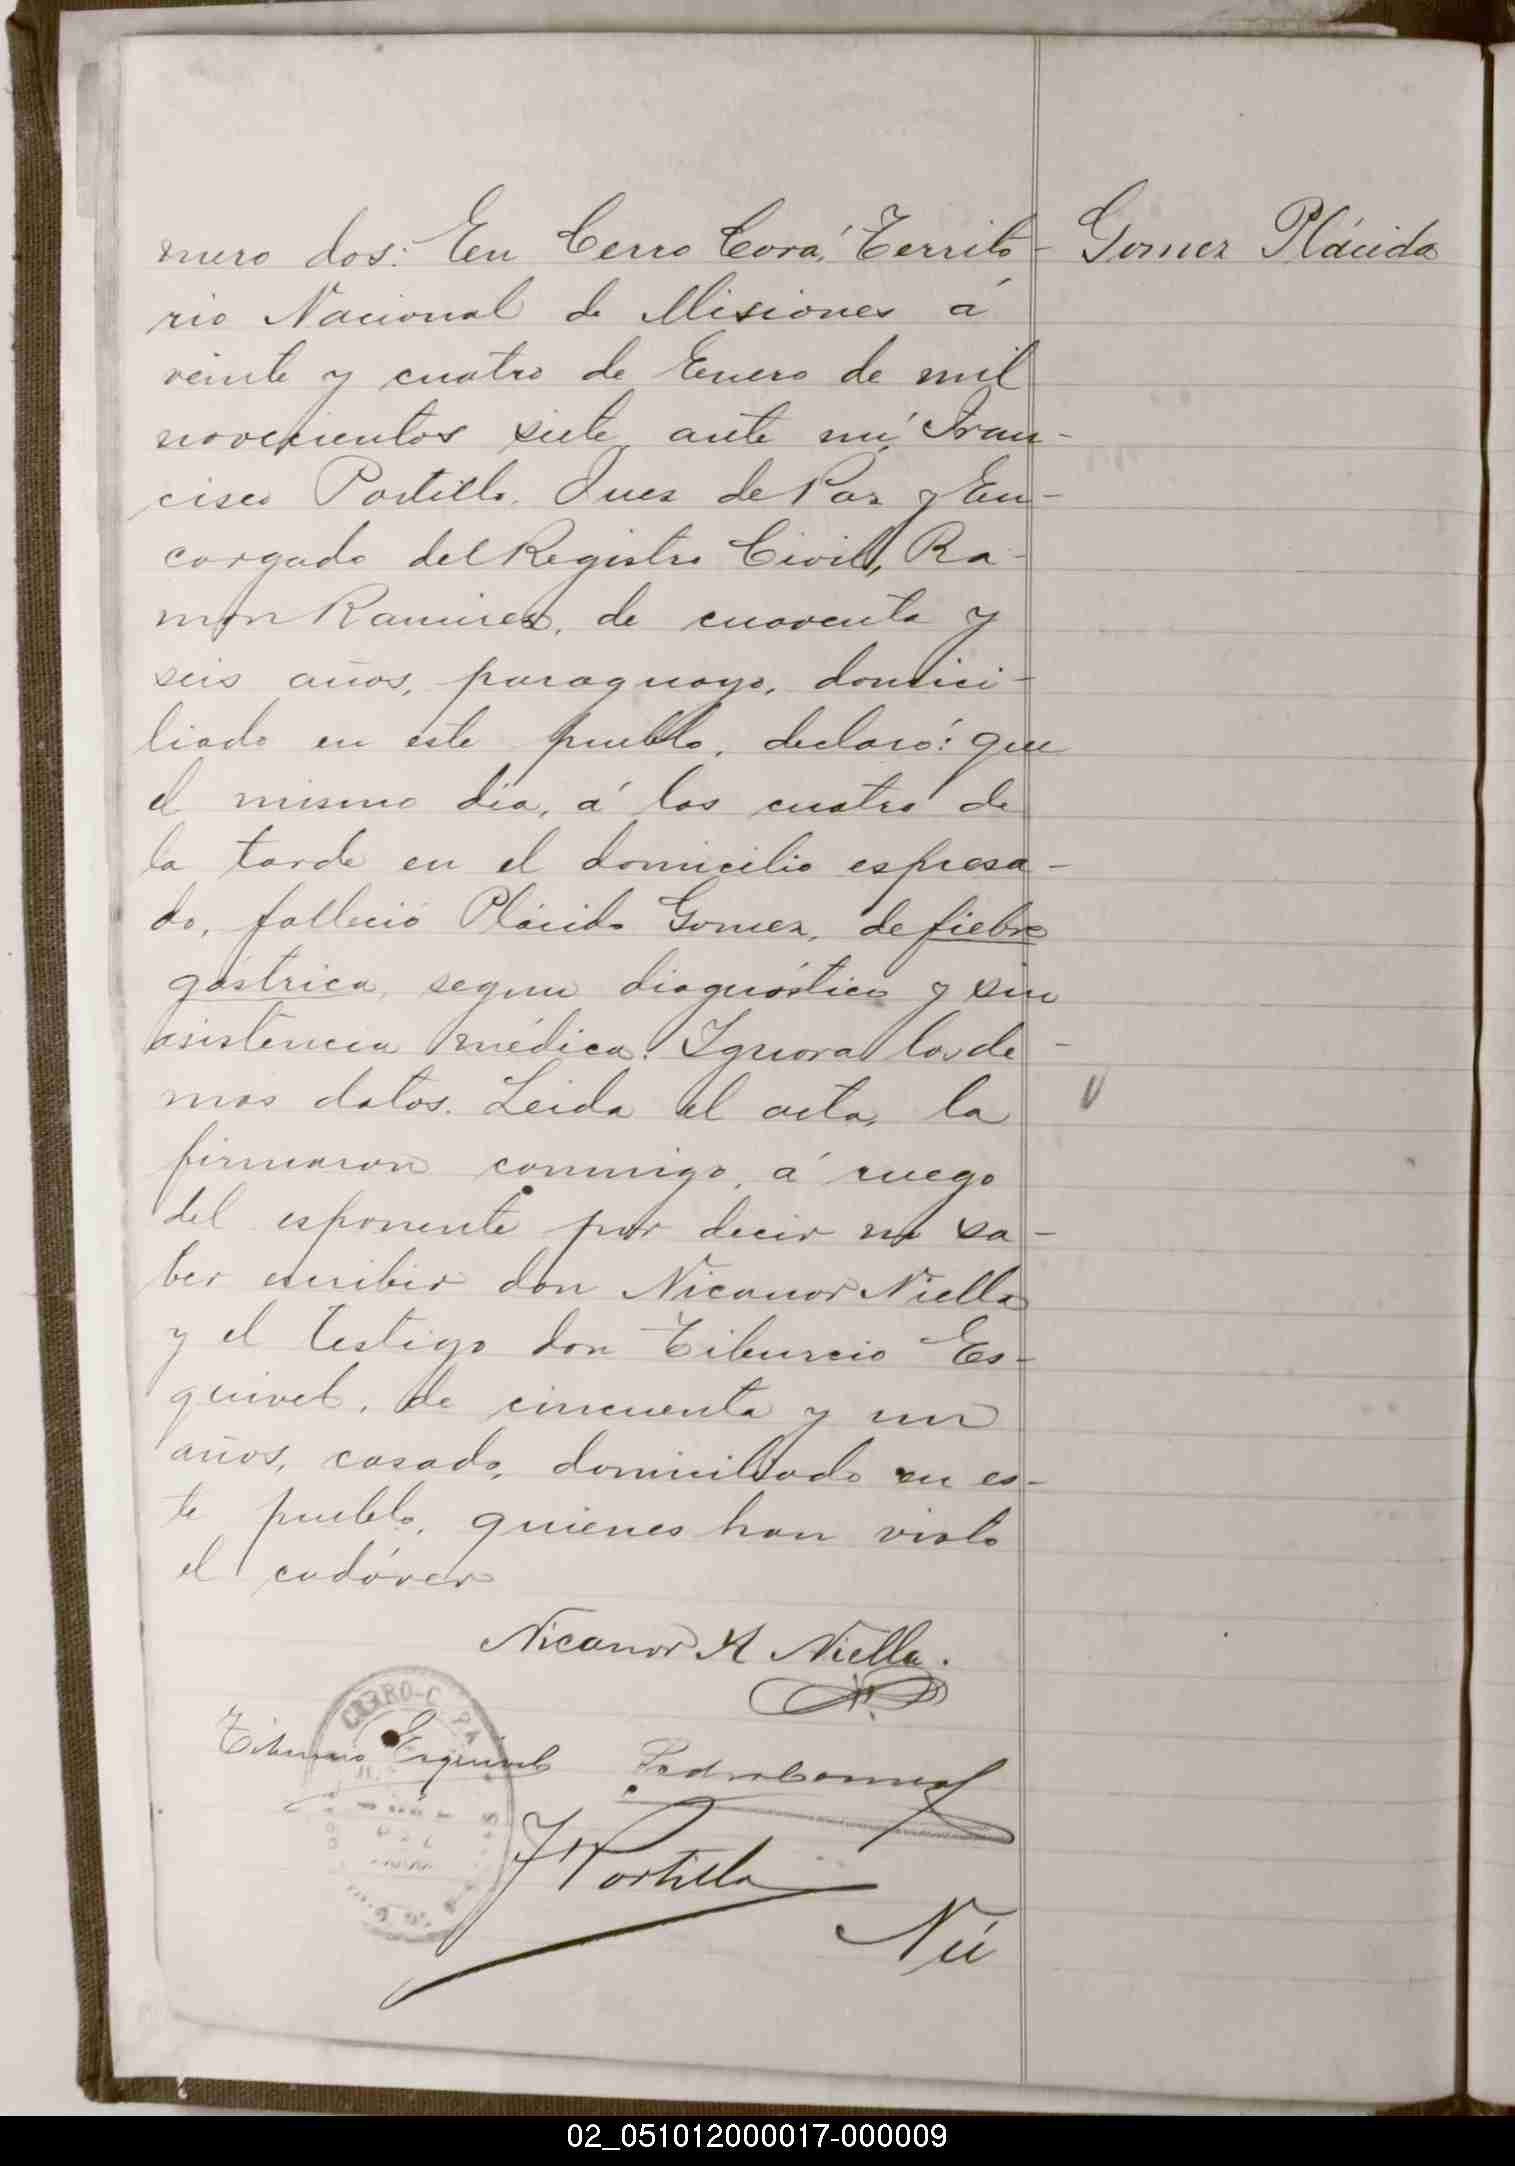 mero dos: En Cerro Corá, Territo-
Gomez Plácido
rio Nacional de Misiones á
veinte y cuatro de Enero de mil
novecientos siete, ante mi, Fran-
cisco Portillo, Juez de Paz y En-
cargado del Registro Civil, Ra-
mon Ramirez, de cuarenta y
seis años, paraguayo, domici-
liado en este pueblo, declaró: que
el mismo dia, á las cuatro de
la tarde en el domicilio espresa-
do, falleció Plácido Gomez, de fiebre
gástrica, segun diagnóstico y sin
asistencia médica. Ignora los de-
mas datos. Leida el acta, la
firmaron conmigo, á ruego
del esponente por decir no sa-
ber escribir don Nicanor Niella
y el testigo don Tiburcio Es-
quivel, de cincuenta y un
años, casado, domiciliado en es-
te pueblo, quienes han visto
el cadáver
Nicanor A Niella.
CERRO-C
Tiburcio Esquivel
F Portillo
Nú
02_051012000017-000009